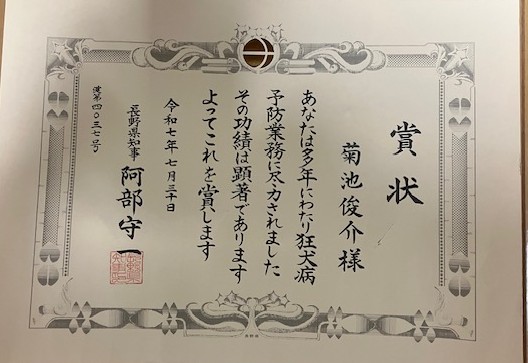 賞状
菊池俊介様
あなたは多年にわたり狂犬病
予防業務に尽力されました
その功績は顕著であります
よってこれを賞します
令和七年七月三十日
長野県知事 阿部守一
健第四〇三七号